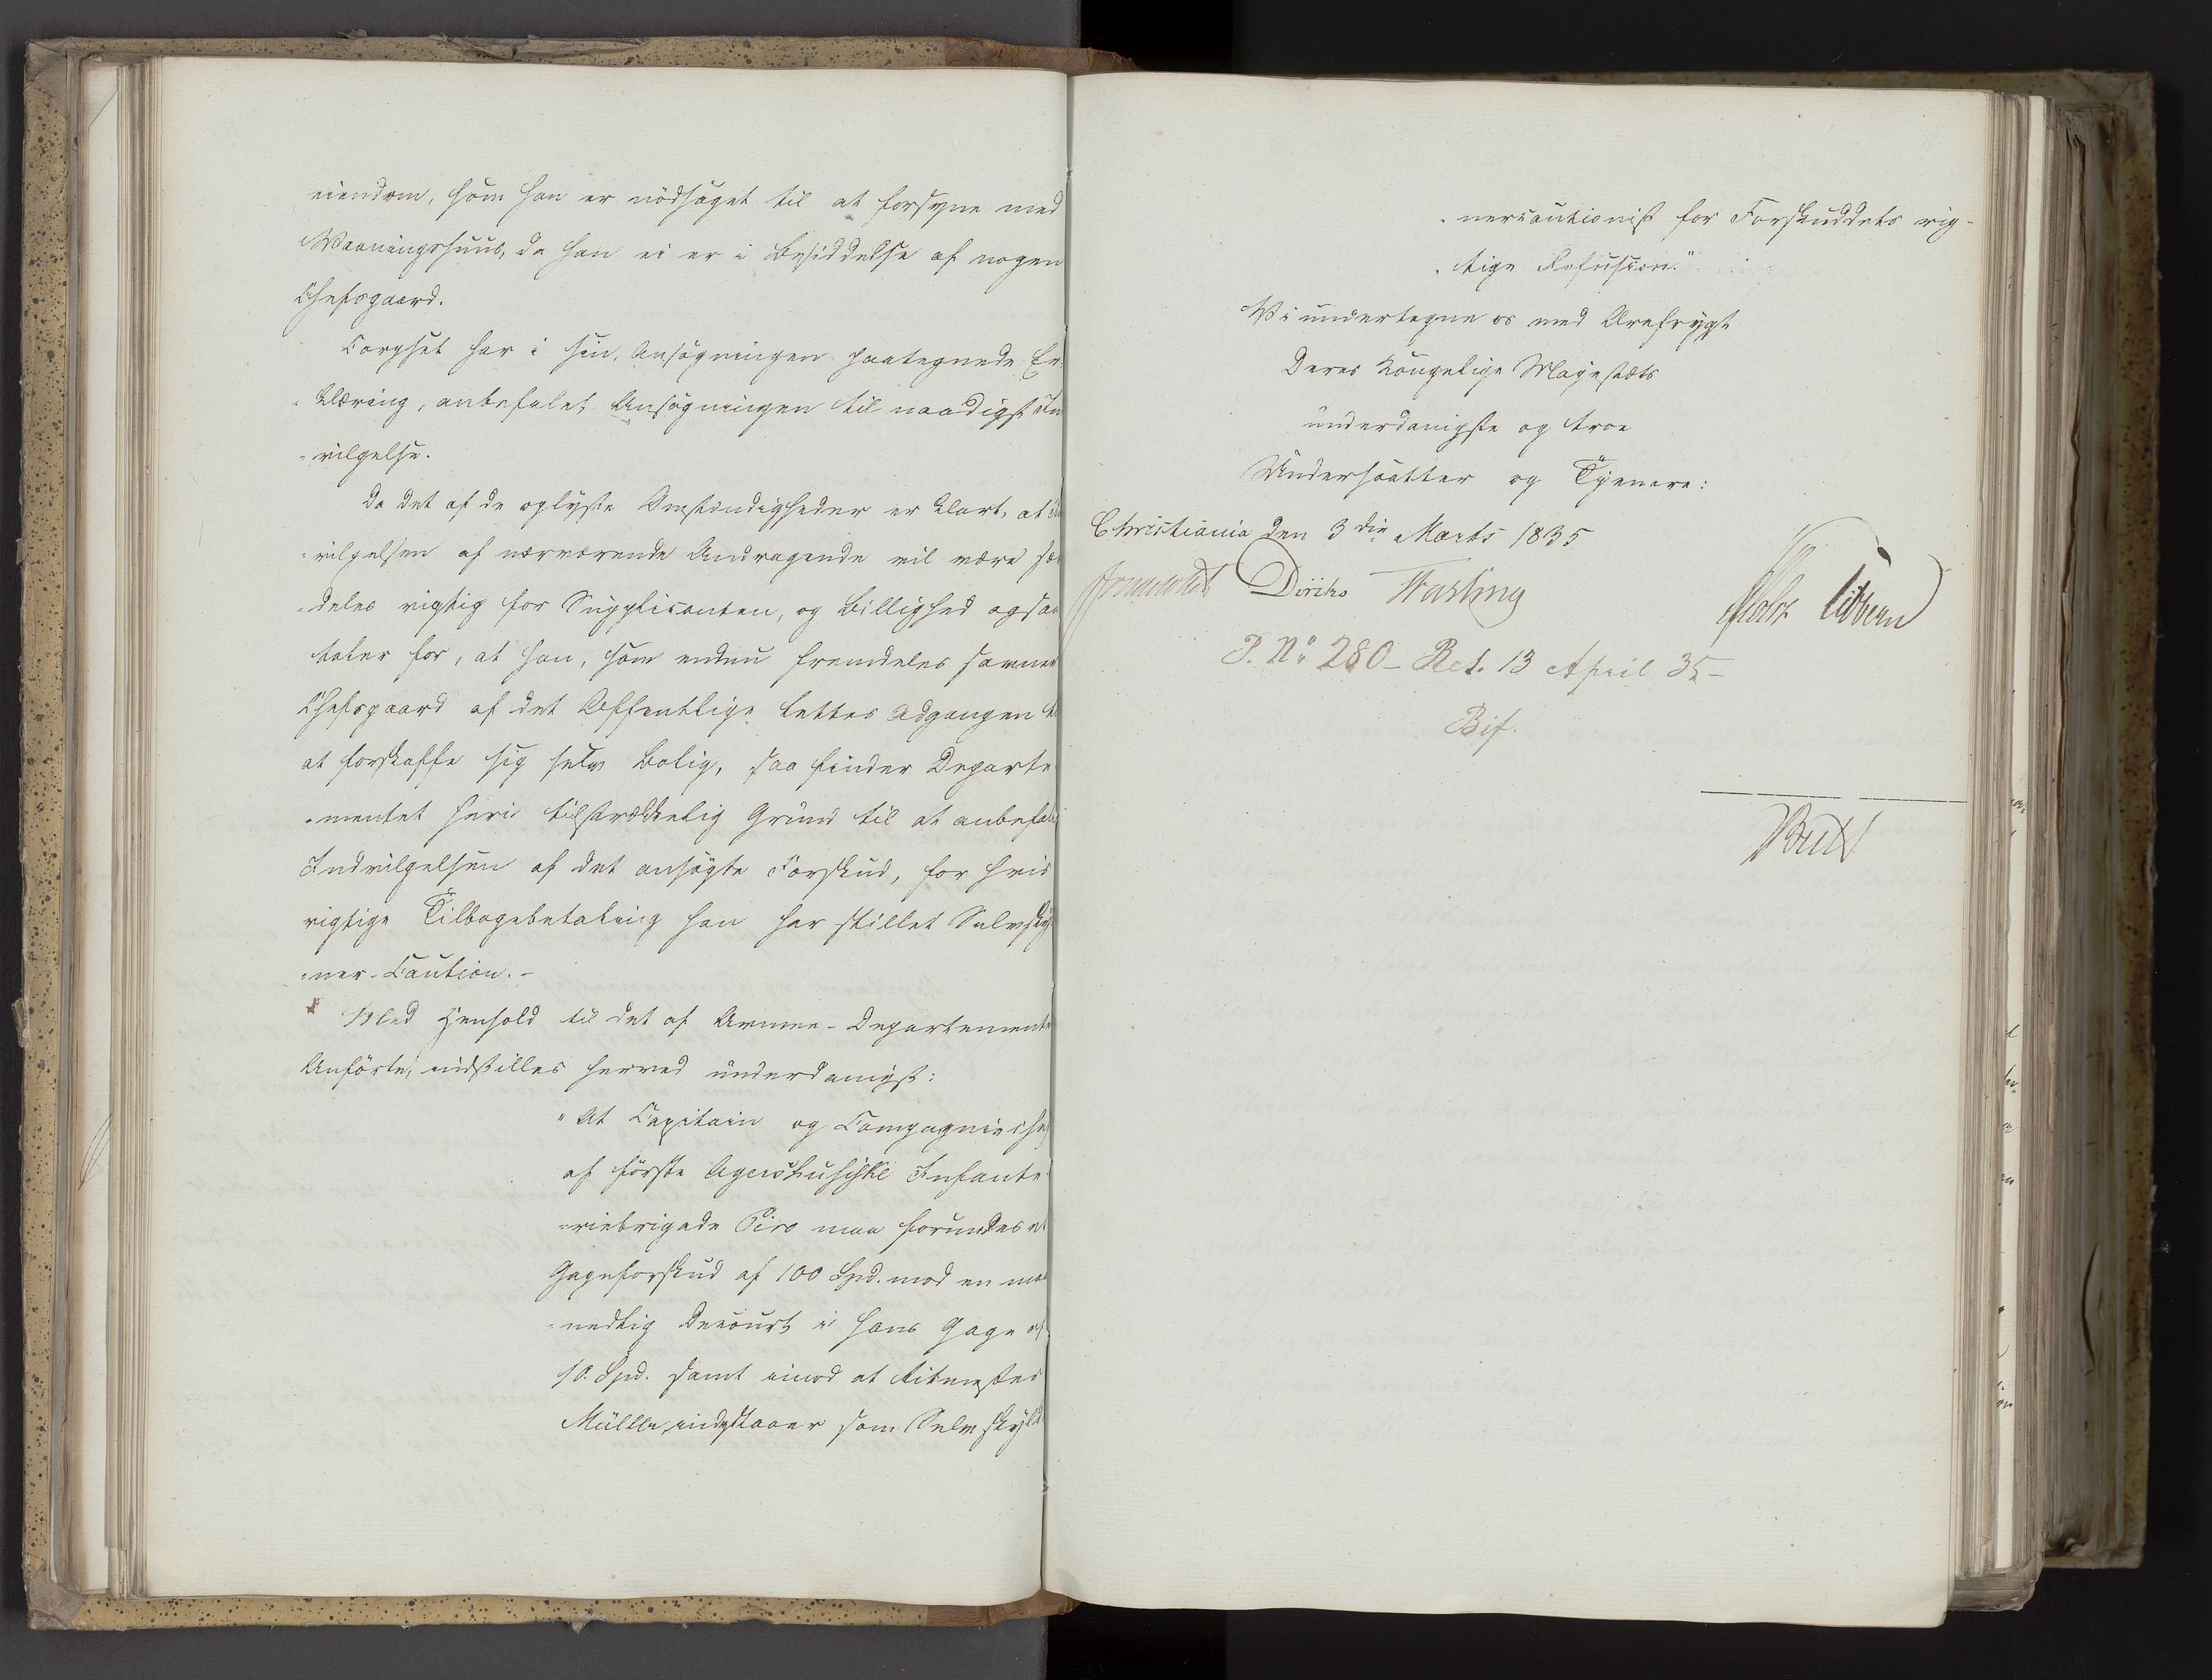 eiendom, som han er nödsaget til at forsyne med
Vaaningshuus, da han ei er i Besiddelse af nogen
Chefsgaard.
Corpset har i sin, Ansögningen paategnede Er-
klæring, anbefalet Ansögningen til naadigst Ind
-vilgelse.
Da det af de oplyste Omstændigheder er klart, at Ind
-vilgelsen af nærværende Andragende vil være sær
-deles vigtig for Supplicanten, og Billighed ogsaa
taler for, at han, som endnu fremdeles savner
Chefsgaard af det Offentlige lettes Adgangen til
at forskaffe sig selv Bolig, saa finder Departe
-mentet heri tilstrækkelig Grund til at anbefale
Indvilgelsen af det ansögte Forskud, for hvis
rigtige Tilbagebetaling han har stillet Selvskyld
-ner-Caution.-
Med Henhold til det af Armee-Departementet
Anförte, indstilles herved underdanigst:
"At Capitain og Compagniechef
af förste Agershusiske Infante
-riebrigade Piro maa forundes et
Gageforskud af 100 Spd. mod en maa
-nedlig Decourt i hans Gage af
10. Spd. samt imod at Ritmester
Müller indgaaer som Selvskyld
-nercautionist for Forskuddets rig-
-tige Refusion."
Vi undertegne os med Ærefrygt
Deres Kongelige Majestæts
underdanigste og troe
Undersaatter og Tjenere:
Christiania den 3die Marts 1835
Diriks Fasting
Holst Vibe
P. No 280 - Ref. 13 April 35-
Bif.